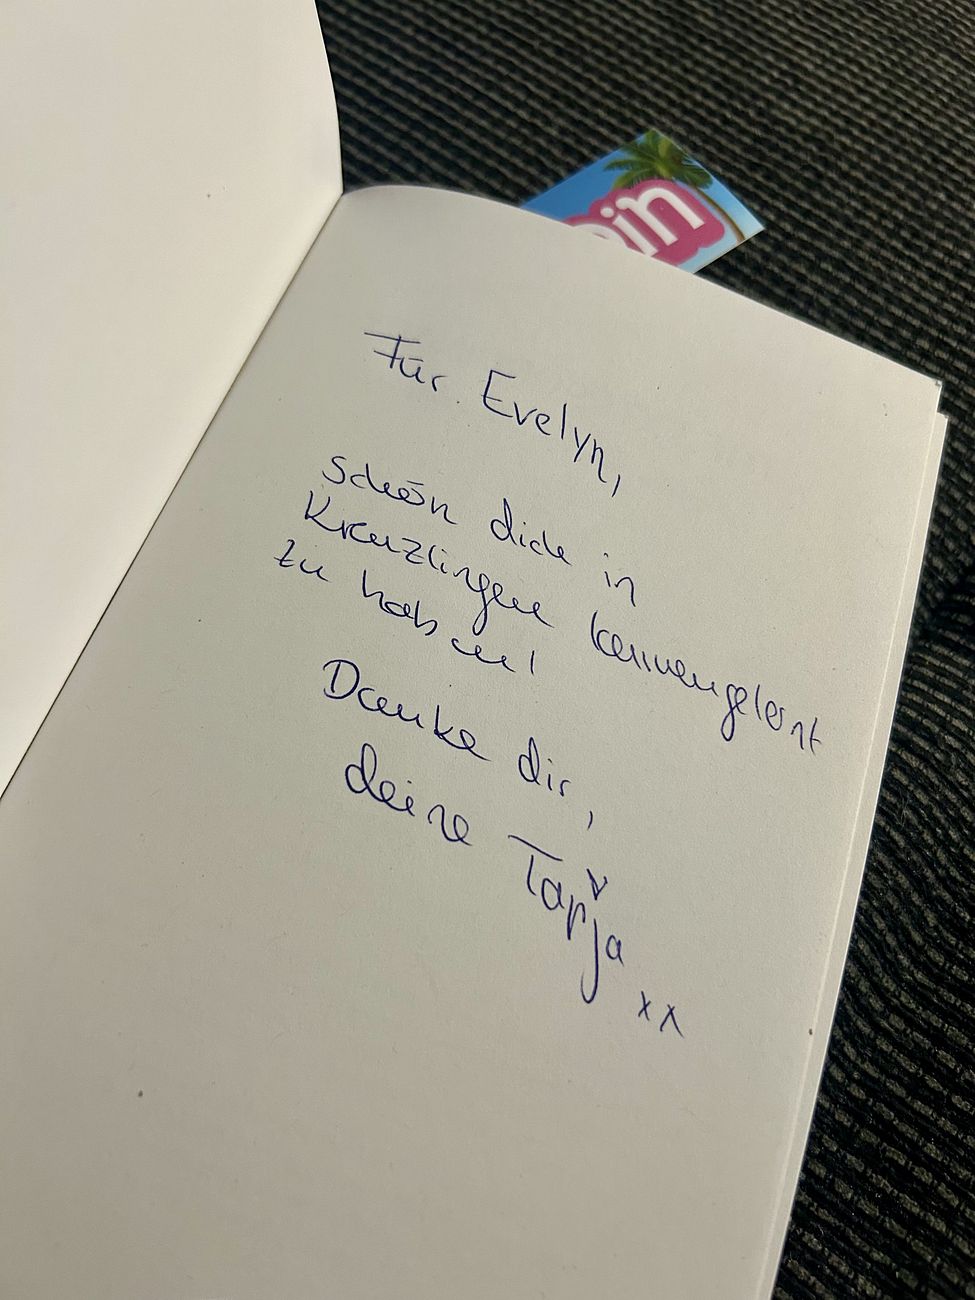 ein
Für Evelyn,
schön dich in
Kreuzlingen kennengelernt
zu haben!
Danke dir,
deine Tanja
xx